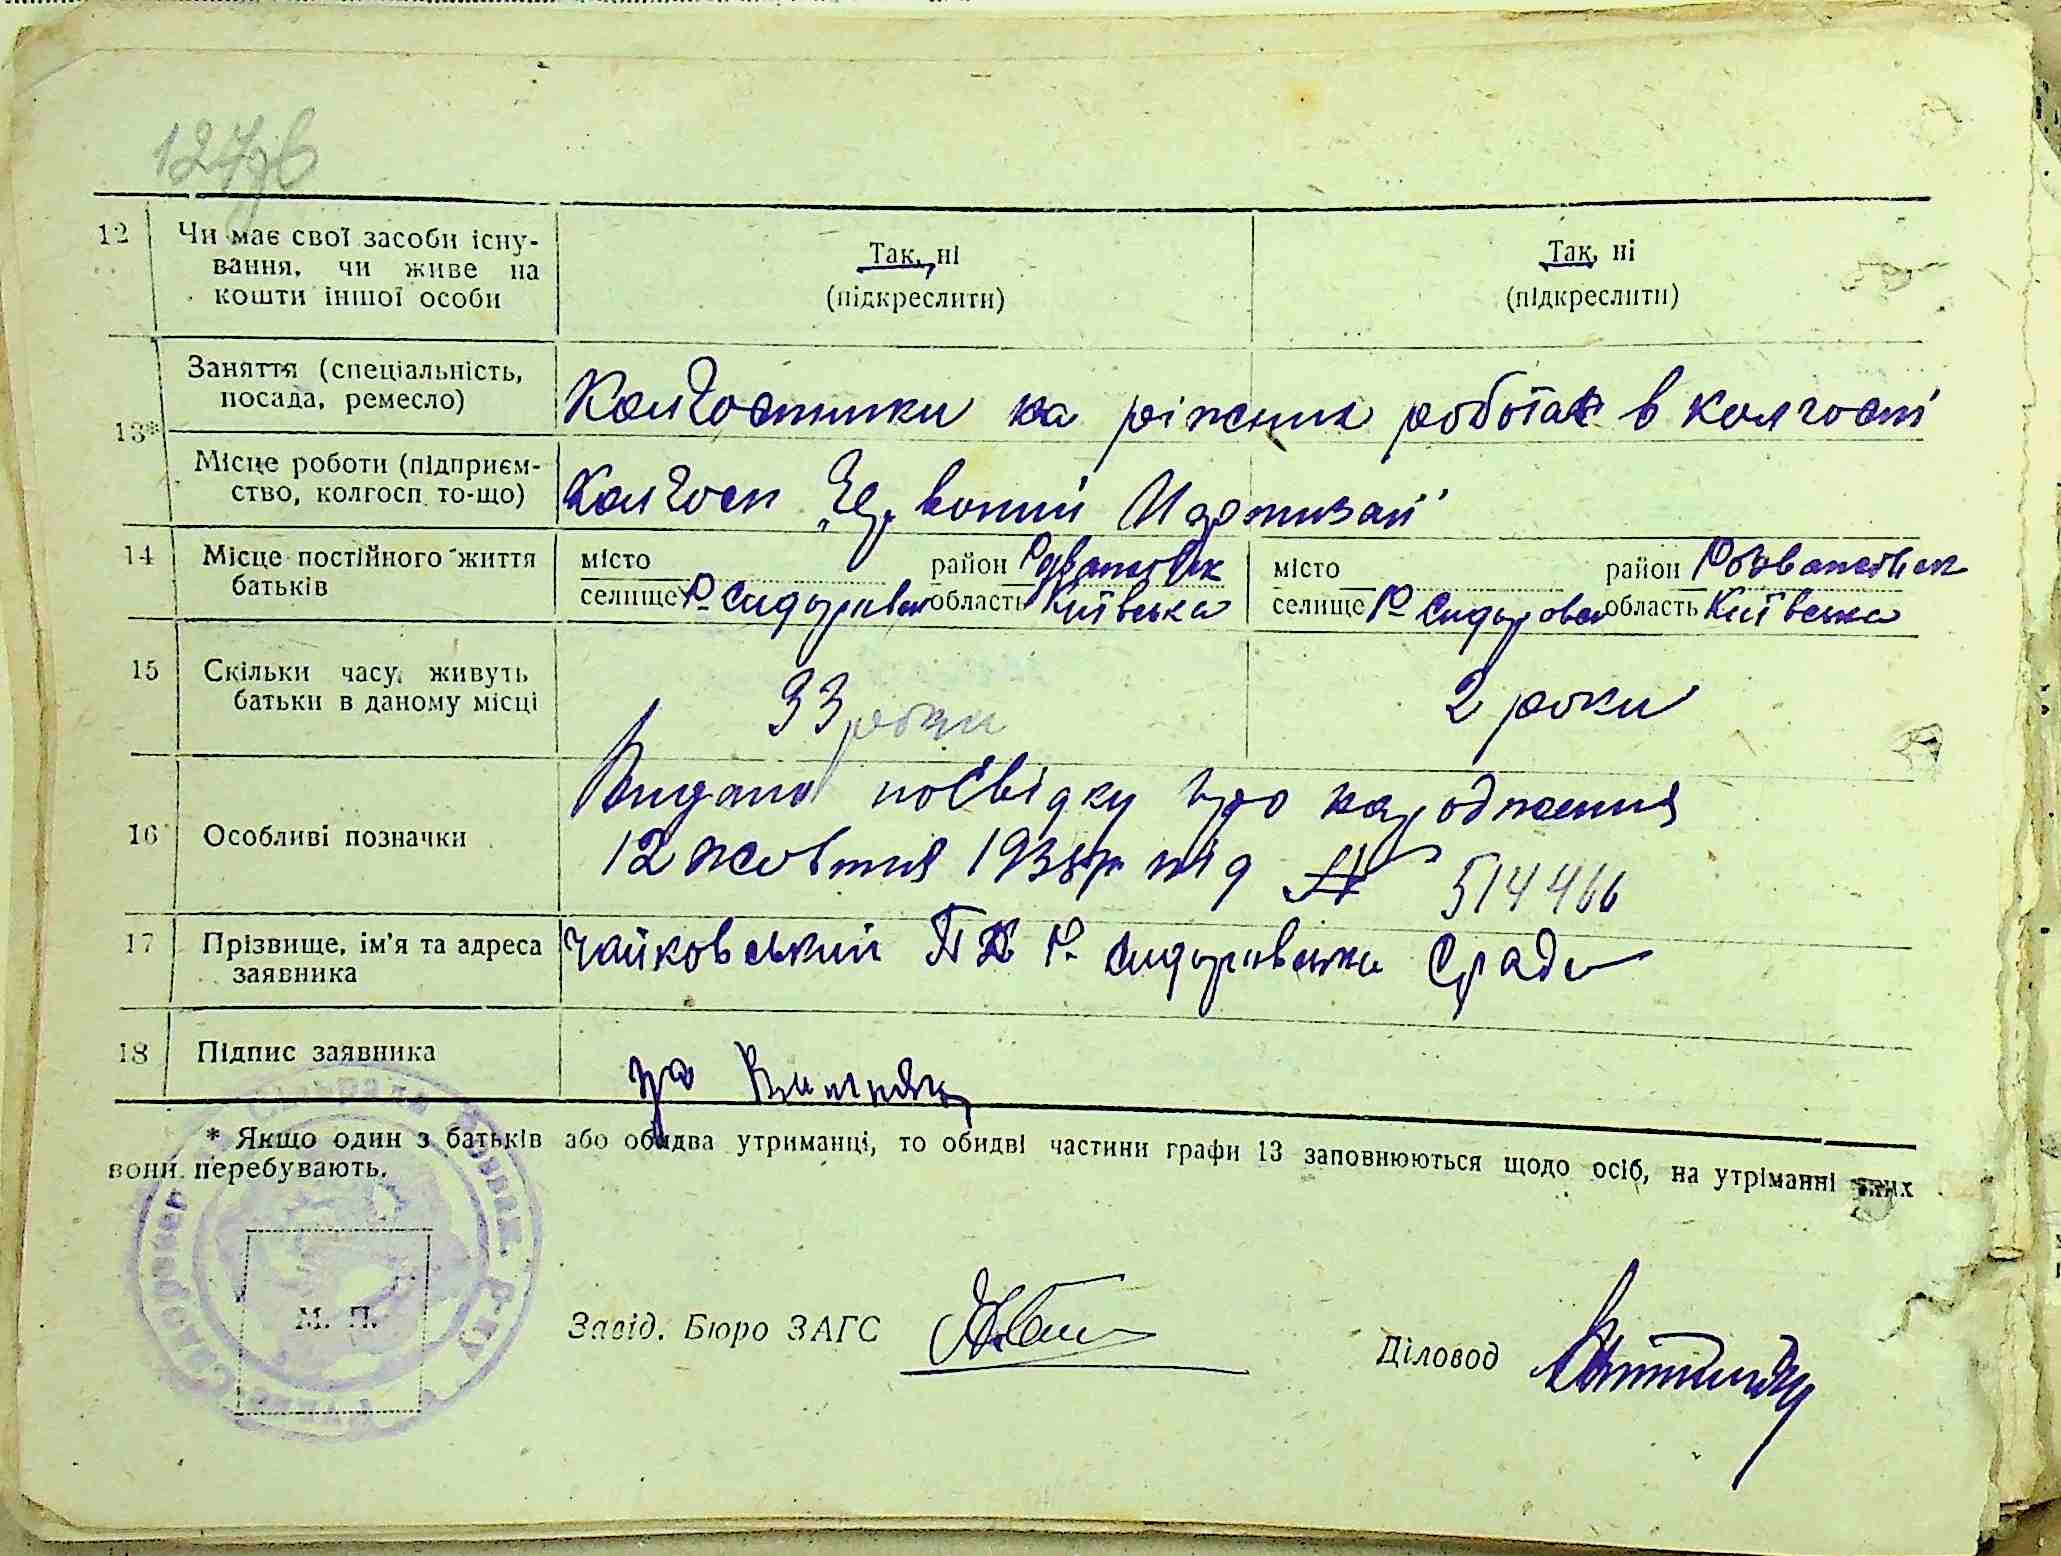 12
Чи має свої засоби існу-
вання, чи живе на
кошти іншої особи
Так, ні
(підкреслити)
Так, ні
(підкреслити)
13*
Заняття (спеціальність,
посада, ремесло)
Колгоспники на ріжних роботах в колгоспі
Місце роботи (підприєм-
ство, колгосп то-що)
Колгосп „Червоний Партизан"
14
Місце постійного життя
батьків
місто район
селище Р Сидорівка область Київська
місто район Розважівськ
селище Р Сидорівка область Київська
15
Скільки часу живуть
батьки в даному місці
33 роки
2 роки
16
Особливі позначки
Видано посвідку про народження
12 жовтня 1938р під № 514466
17
Прізвище, ім'я та адреса
заявника
Чайковський Р. Сидорівська С/рада
18
Підпис заявника
* Якщо один з батьків або обидва утриманці, то обидві частини графи 13 заповнюються щодо осіб, на утріманні яких
вони перебувають.
М. П.
Завід. Бюро ЗАГС
Діловод